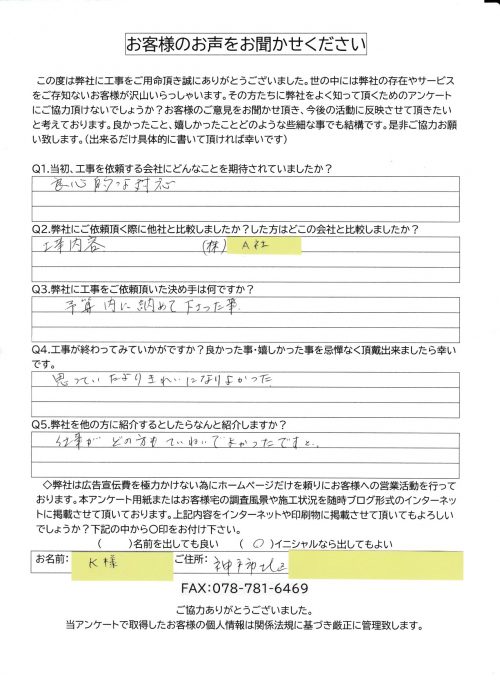 お客様のお声をお聞かせください
この度は弊社に工事をご用命頂き誠にありがとうございました。世の中には弊社の存在やサービス
をご存知ないお客様が沢山いらっしゃいます。その方たちに弊社をよく知って頂くためのアンケート
にご協力頂けないでしょうか？お客様のご意見をお聞かせ頂き、今後の活動に反映させて頂きたい
と考えております。良かったこと、嬉しかったことどのような些細な事でも結構です。是非ご協力お願
い致します。（出来るだけ具体的に書いて頂ければ幸いです）
Q1.当初、工事を依頼する会社にどんなことを期待されていましたか？
良心的な対応
Q2.弊社にご依頼頂く際に他社と比較しましたか？した方はどこの会社と比較しましたか？
工事内容 (株) A社
Q3.弊社に工事をご依頼頂いた決め手は何ですか？
予算内に納めて下さった事.
Q4.工事が終わってみていかがですか？良かった事・嬉しかった事を忌憚なく頂戴出来ましたら幸い
です。
思っていたよりきれいになりよかった
Q5.弊社を他の方に紹介するとしたらなんと紹介しますか？
仕事がどの方もていねいでよかったですと、
◇弊社は広告宣伝費を極力かけない為にホームページだけを頼りにお客様への営業活動を行って
おります。本アンケート用紙またはお客様宅の調査風景や施工状況を随時ブログ形式のインターネッ
トに掲載させて頂いております。上記内容をインターネットや印刷物に掲載させて頂いてもよろしい
でしょうか？下記の中から〇印をお付け下さい。
（　　）名前を出しても良い （ 〇 ）イニシャルなら出してもよい
お名前： K様 ご住所： 神戸市北区
FAX：078-781-6469
ご協力ありがとうございました。
当アンケートで取得したお客様の個人情報は関係法規に基づき厳正に管理致します。